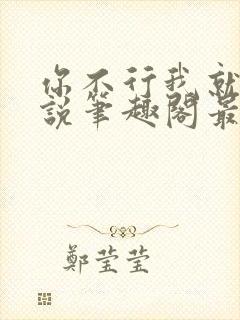 你不行我就
說筆趣閣最
鄭莹莹